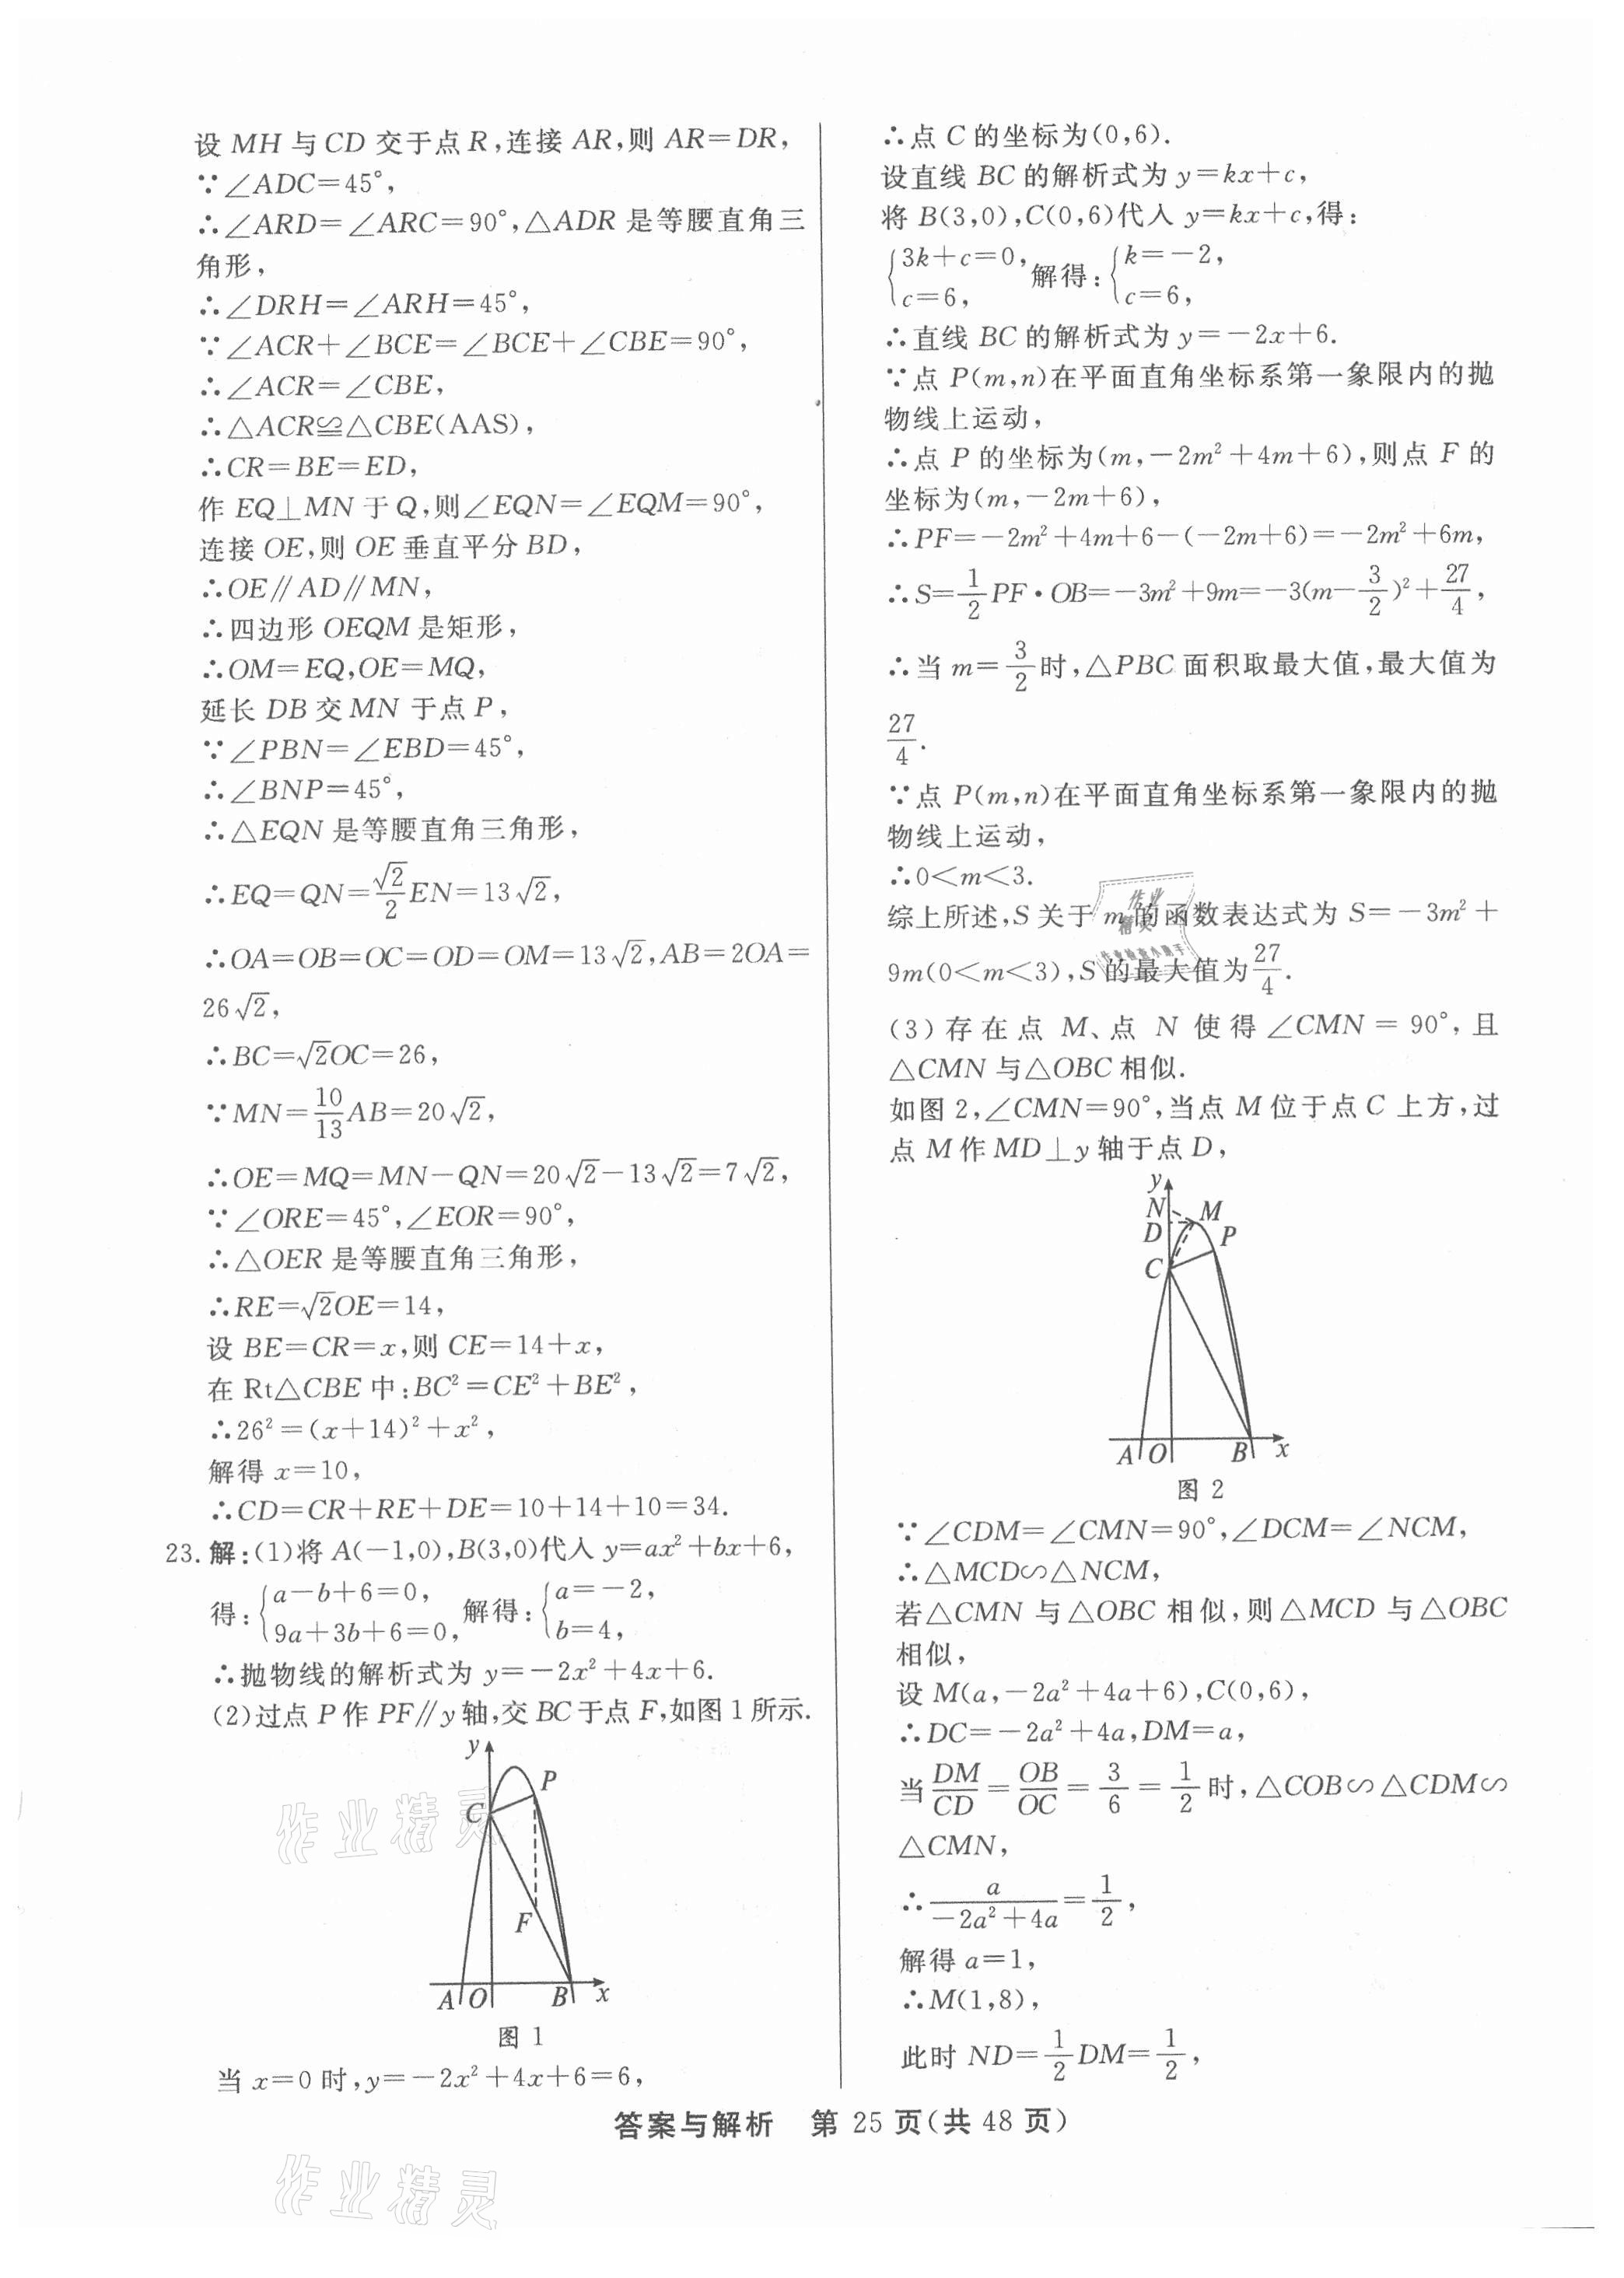 设 MH 与 CD 交于点 R,连接 AR,则 AR=DR,
∵∠ADC=45°,
∴∠ARD=∠ARC=90°,△ADR 是等腰直角三
角形,
∴∠DRH=∠ARH=45°,
∵∠ACR+∠BCE=∠BCE+∠CBE=90°,
∴∠ACR=∠CBE,
∴△ACR≌△CBE(AAS),
∴CR=BE=ED,
作 EQ⊥MN 于 Q,则∠EQN=∠EQM=90°,
连接 OE,则 OE 垂直平分 BD,
∴OE∥AD∥MN,
∴四边形 OEQM 是矩形,
∴OM=EQ,OE=MQ,
延长 DB 交 MN 于点 P,
∵∠PBN=∠EBD=45°,
∴∠BNP=45°,
∴△EQN 是等腰直角三角形,
∴EQ=QN=√2/2 EN=13√2,
∴OA=OB=OC=OD=OM=13√2,AB=2OA=
26√2,
∴BC=√2OC=26,
∵MN=10/13 AB=20√2,
∴OE=MQ=MN-QN=20√2-13√2=7√2,
∵∠ORE=45°,∠EOR=90°,
∴△OER 是等腰直角三角形,
∴RE=√2OE=14,
设 BE=CR=x,则 CE=14+x,
在 Rt△CBE 中:BC²=CE²+BE²,
∴26²=(x+14)²+x²,
解得 x=10,
∴CD=CR+RE+DE=10+14+10=34.
23. 解:(1)将 A(-1,0),B(3,0)代入 y=ax²+bx+6,
得:{a-b+6=0, 9a+3b+6=0, 解得:{a=-2, b=4,
∴抛物线的解析式为 y=-2x²+4x+6.
(2)过点 P 作 PF∥y 轴,交 BC 于点 F,如图 1 所示.
y
P
C
F
A O B x
图 1
当 x=0 时,y=-2x²+4x+6=6,
∴点 C 的坐标为(0,6).
设直线 BC 的解析式为 y=kx+c,
将 B(3,0),C(0,6)代入 y=kx+c,得:
{3k+c=0, c=6, 解得:{k=-2, c=6,
∴直线 BC 的解析式为 y=-2x+6.
∵点 P(m,n)在平面直角坐标系第一象限内的抛
物线上运动,
∴点 P 的坐标为(m,-2m²+4m+6),则点 F 的
坐标为(m,-2m+6),
∴PF=-2m²+4m+6-(-2m+6)=-2m²+6m,
∴S=1/2 PF·OB=-3m²+9m=-3(m-3/2)²+27/4,
∴当 m=3/2 时,△PBC 面积取最大值,最大值为
27/4.
∵点 P(m,n)在平面直角坐标系第一象限内的抛
物线上运动,
∴0<m<3.
综上所述,S 关于 m 的函数表达式为 S=-3m²+
9m(0<m<3),S 的最大值为 27/4.
(3)存在点 M、点 N 使得∠CMN=90°,且
△CMN 与△OBC 相似.
如图 2,∠CMN=90°,当点 M 位于点 C 上方,过
点 M 作 MD⊥y 轴于点 D,
y
N M
D P
C
A O B x
图 2
∵∠CDM=∠CMN=90°,∠DCM=∠NCM,
∴△MCD∽△NCM,
若△CMN 与△OBC 相似,则△MCD 与△OBC
相似,
设 M(a,-2a²+4a+6),C(0,6),
∴DC=-2a²+4a,DM=a,
当 DM/CD=OB/OC=3/6=1/2 时,△COB∽△CDM∽
△CMN,
∴a/(-2a²+4a)=1/2,
解得 a=1,
∴M(1,8),
此时 ND=1/2 DM=1/2,
答案与解析 第 25 页(共 48 页)
作业精灵
作业精灵
作业
精灵